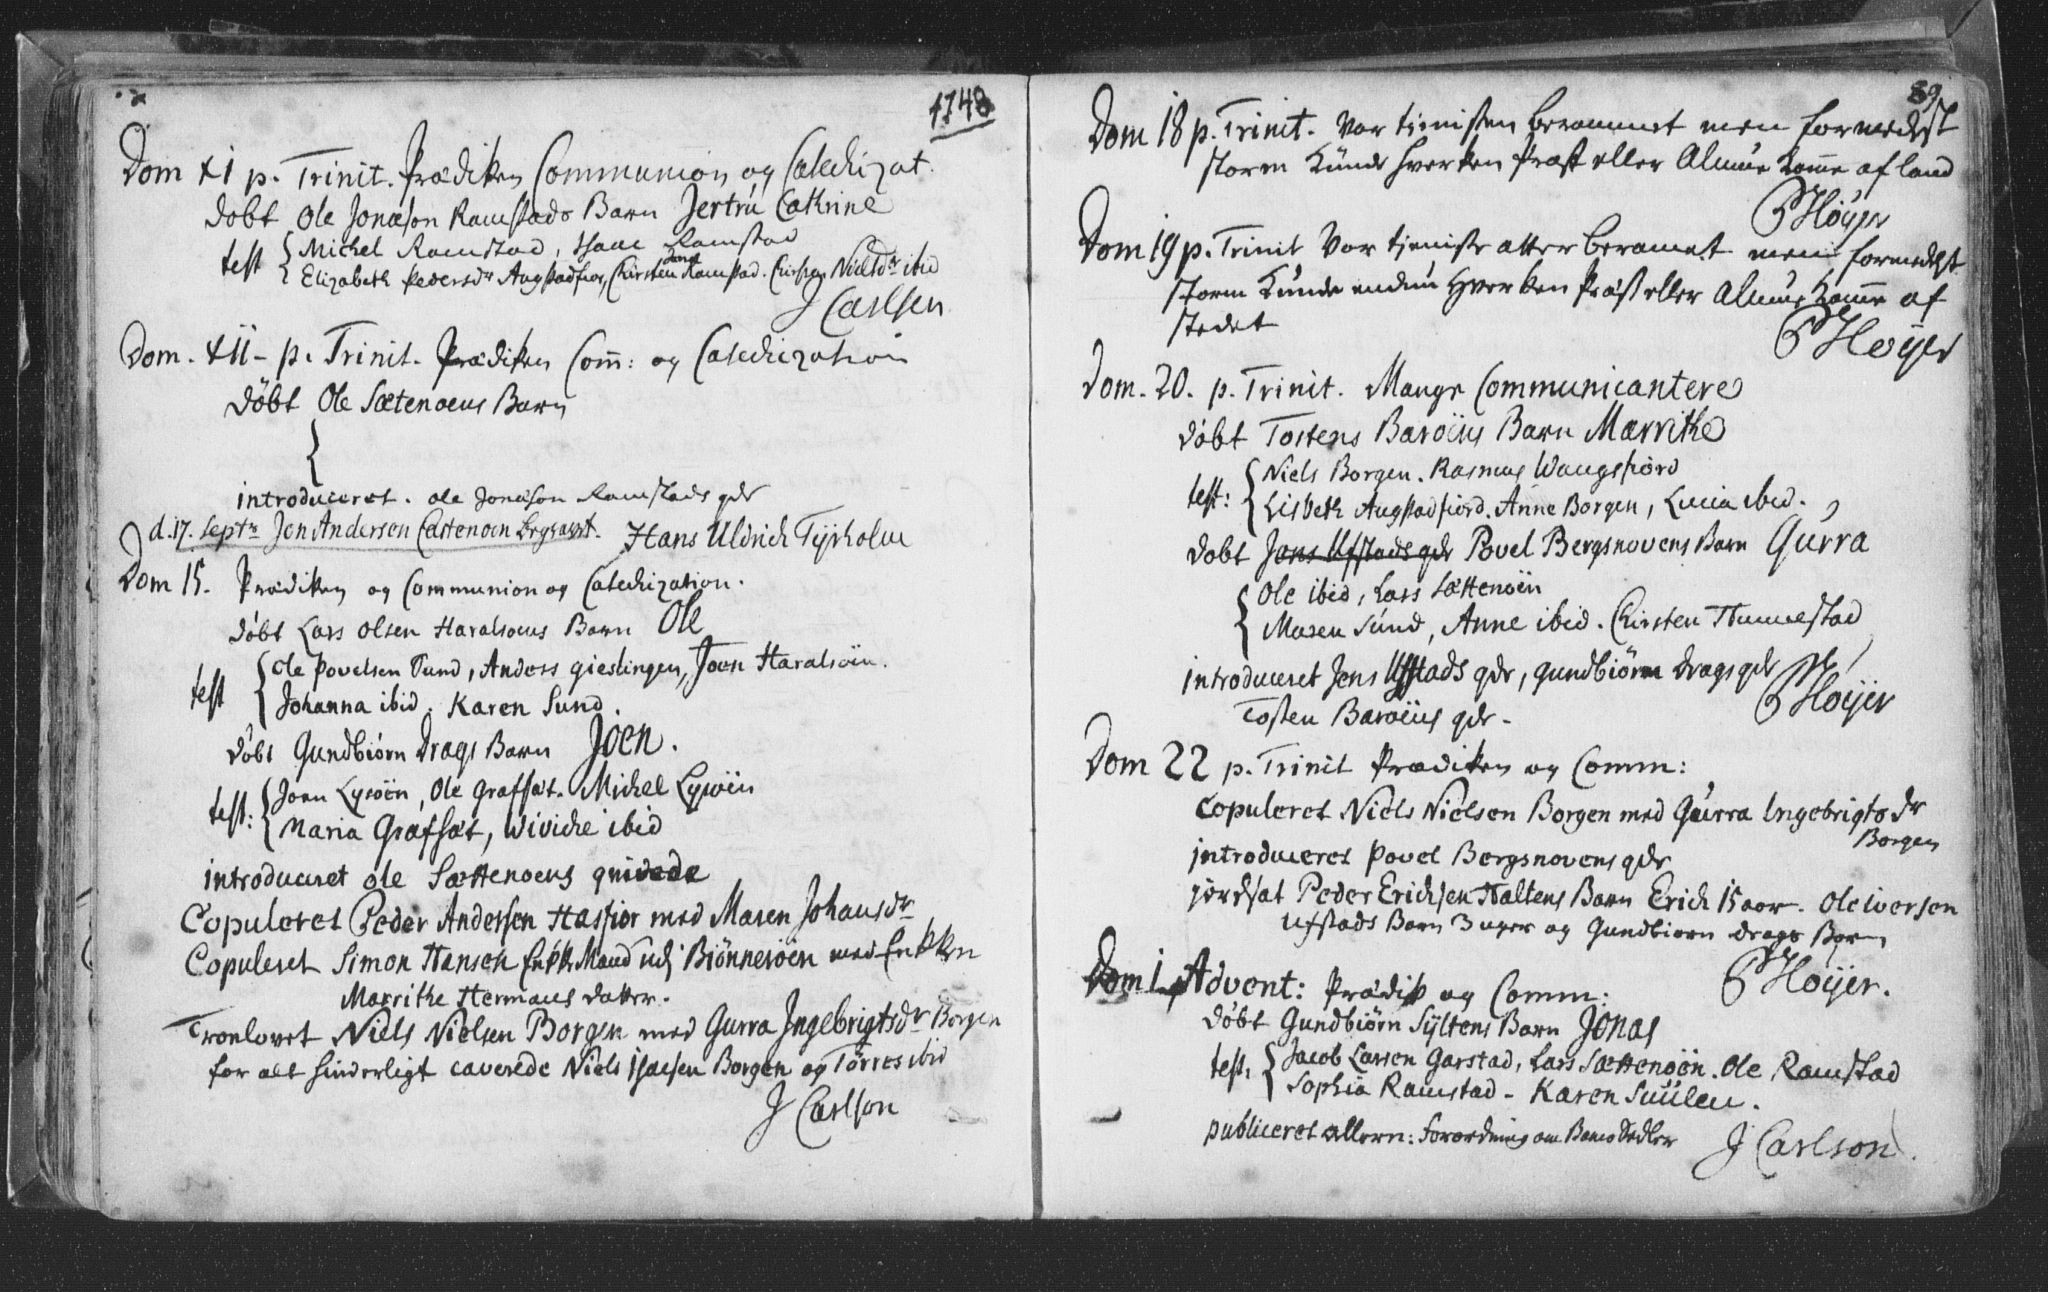 1748
Dom XI p. Trinit. Prædiken Communion og Catechizat.
døbt Ole Jonæson Ramstads Barn Jertru Cathrine
test { Michel Ramstad, Isaac Ramstad
Elizabeth Pedersdr Augstadfior, Kirsten Ramstad. Nielsdr ibid
J Carlsen
Dom. XII p. Trinit. Prædiken Com̄: og Catechization
døbt Ole Sætenoens Barn
{
introduceret. Ole Jonæson Ramstads qde
d. 17. Septr Jon Andersen Begravet. Hans Uldrich Tyrholm
Dom 15. Prædiken og Communion og Catechization.
døbt Lars Olsen Haralsoens Barn Ole
test { Ole Povelsen Sund, Anders gieslingen, Joen Haralsöin.
Johanna ibid. Karen Sund.
döbt Gundbiörn Drags Barn Joen.
test: { Joen Lysöen, Ole Grafsæt. Michel Lysöen
Maria Grafsæt, Wiviche ibid
introduceret Ole Sættenoens qvinde
Copuleret Peder Andersen Hasfior med Maren Johansdr
Copuleret Simon Hansen Enke Mand udj Biönneröen med Enken
Marrithe Hermans datter.
Troelovet Niels Nielsen Borgen med Gurra Jngebrigtsdr Borgen
for alt hinderligt caverede Niels Isacsen Borgen og Törres ibid
J Carlson
89
Dom 18 p. Trinit. Var tienisten berammet men formedelst
storm kunde hverken Præst eller Almue kom̄e af land
PHöyer
Dom 19 p. Trinit Var tieniste atter beramet men formedelst
storm kunde endnu hverken Præst eller Almue kom̄e af
stedet
PHöyer
Dom. 20. p. Trinit. Mange Communicantere
döbt Tostens Baröens Barn Marrithe
test: { Niels Borgen. Rasmus Waugsfiord
Lisbeth Augstadfiord. Anne Borgen, Lucia ibid.
döbt Jens Ufstads qde Povel Bergsnovens Barn Gurra
{ Ole ibid, Lars Sættenöen
Maren Sund, Anne ibid. Kirsten Hummelstad
introduceret Jens Ufstads qde, gundbiörn Drags qde
PHöyer
Tosten Baröens qde.
Dom 22 p. Trinit Prædiken og Comm:
Copuleret Niels Nielsen Borgen med Gurra Ingebrigtsdr
Borgen
introduceret Povel Bergsnovens qde
jordsat Peder Erichsen Haltens Barn Erich 15 aar. Ole Iversen
Ufstads Barn 3 uger og Gundbiorn drags Barn
PHöyer.
Dom 1 Advent: Prædik og Comm:
döbt Gundbiörn Syltens Barn Jonas
test: { Jacob Larsen Garstad, Lars Sættenöen. Ole Ramstad
Sophia Ramstad - Karen Suulen.
publiceret allern: forordning om Banco Sedler
J Carlson